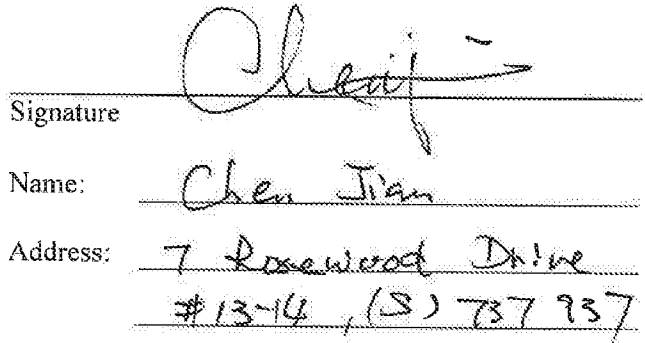 Signature
Name: Chen Jian
Address: 7 Rosewood Drive
#13-14, (S) 737937